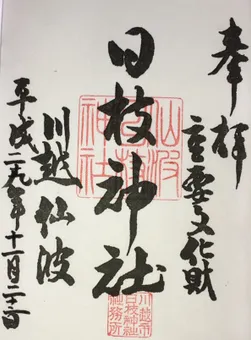 奉拝
重要文化財
日枝神社
川越仙波
平成二九年十一月二十三日
仙波日枝神社
川越市日枝神社社務所